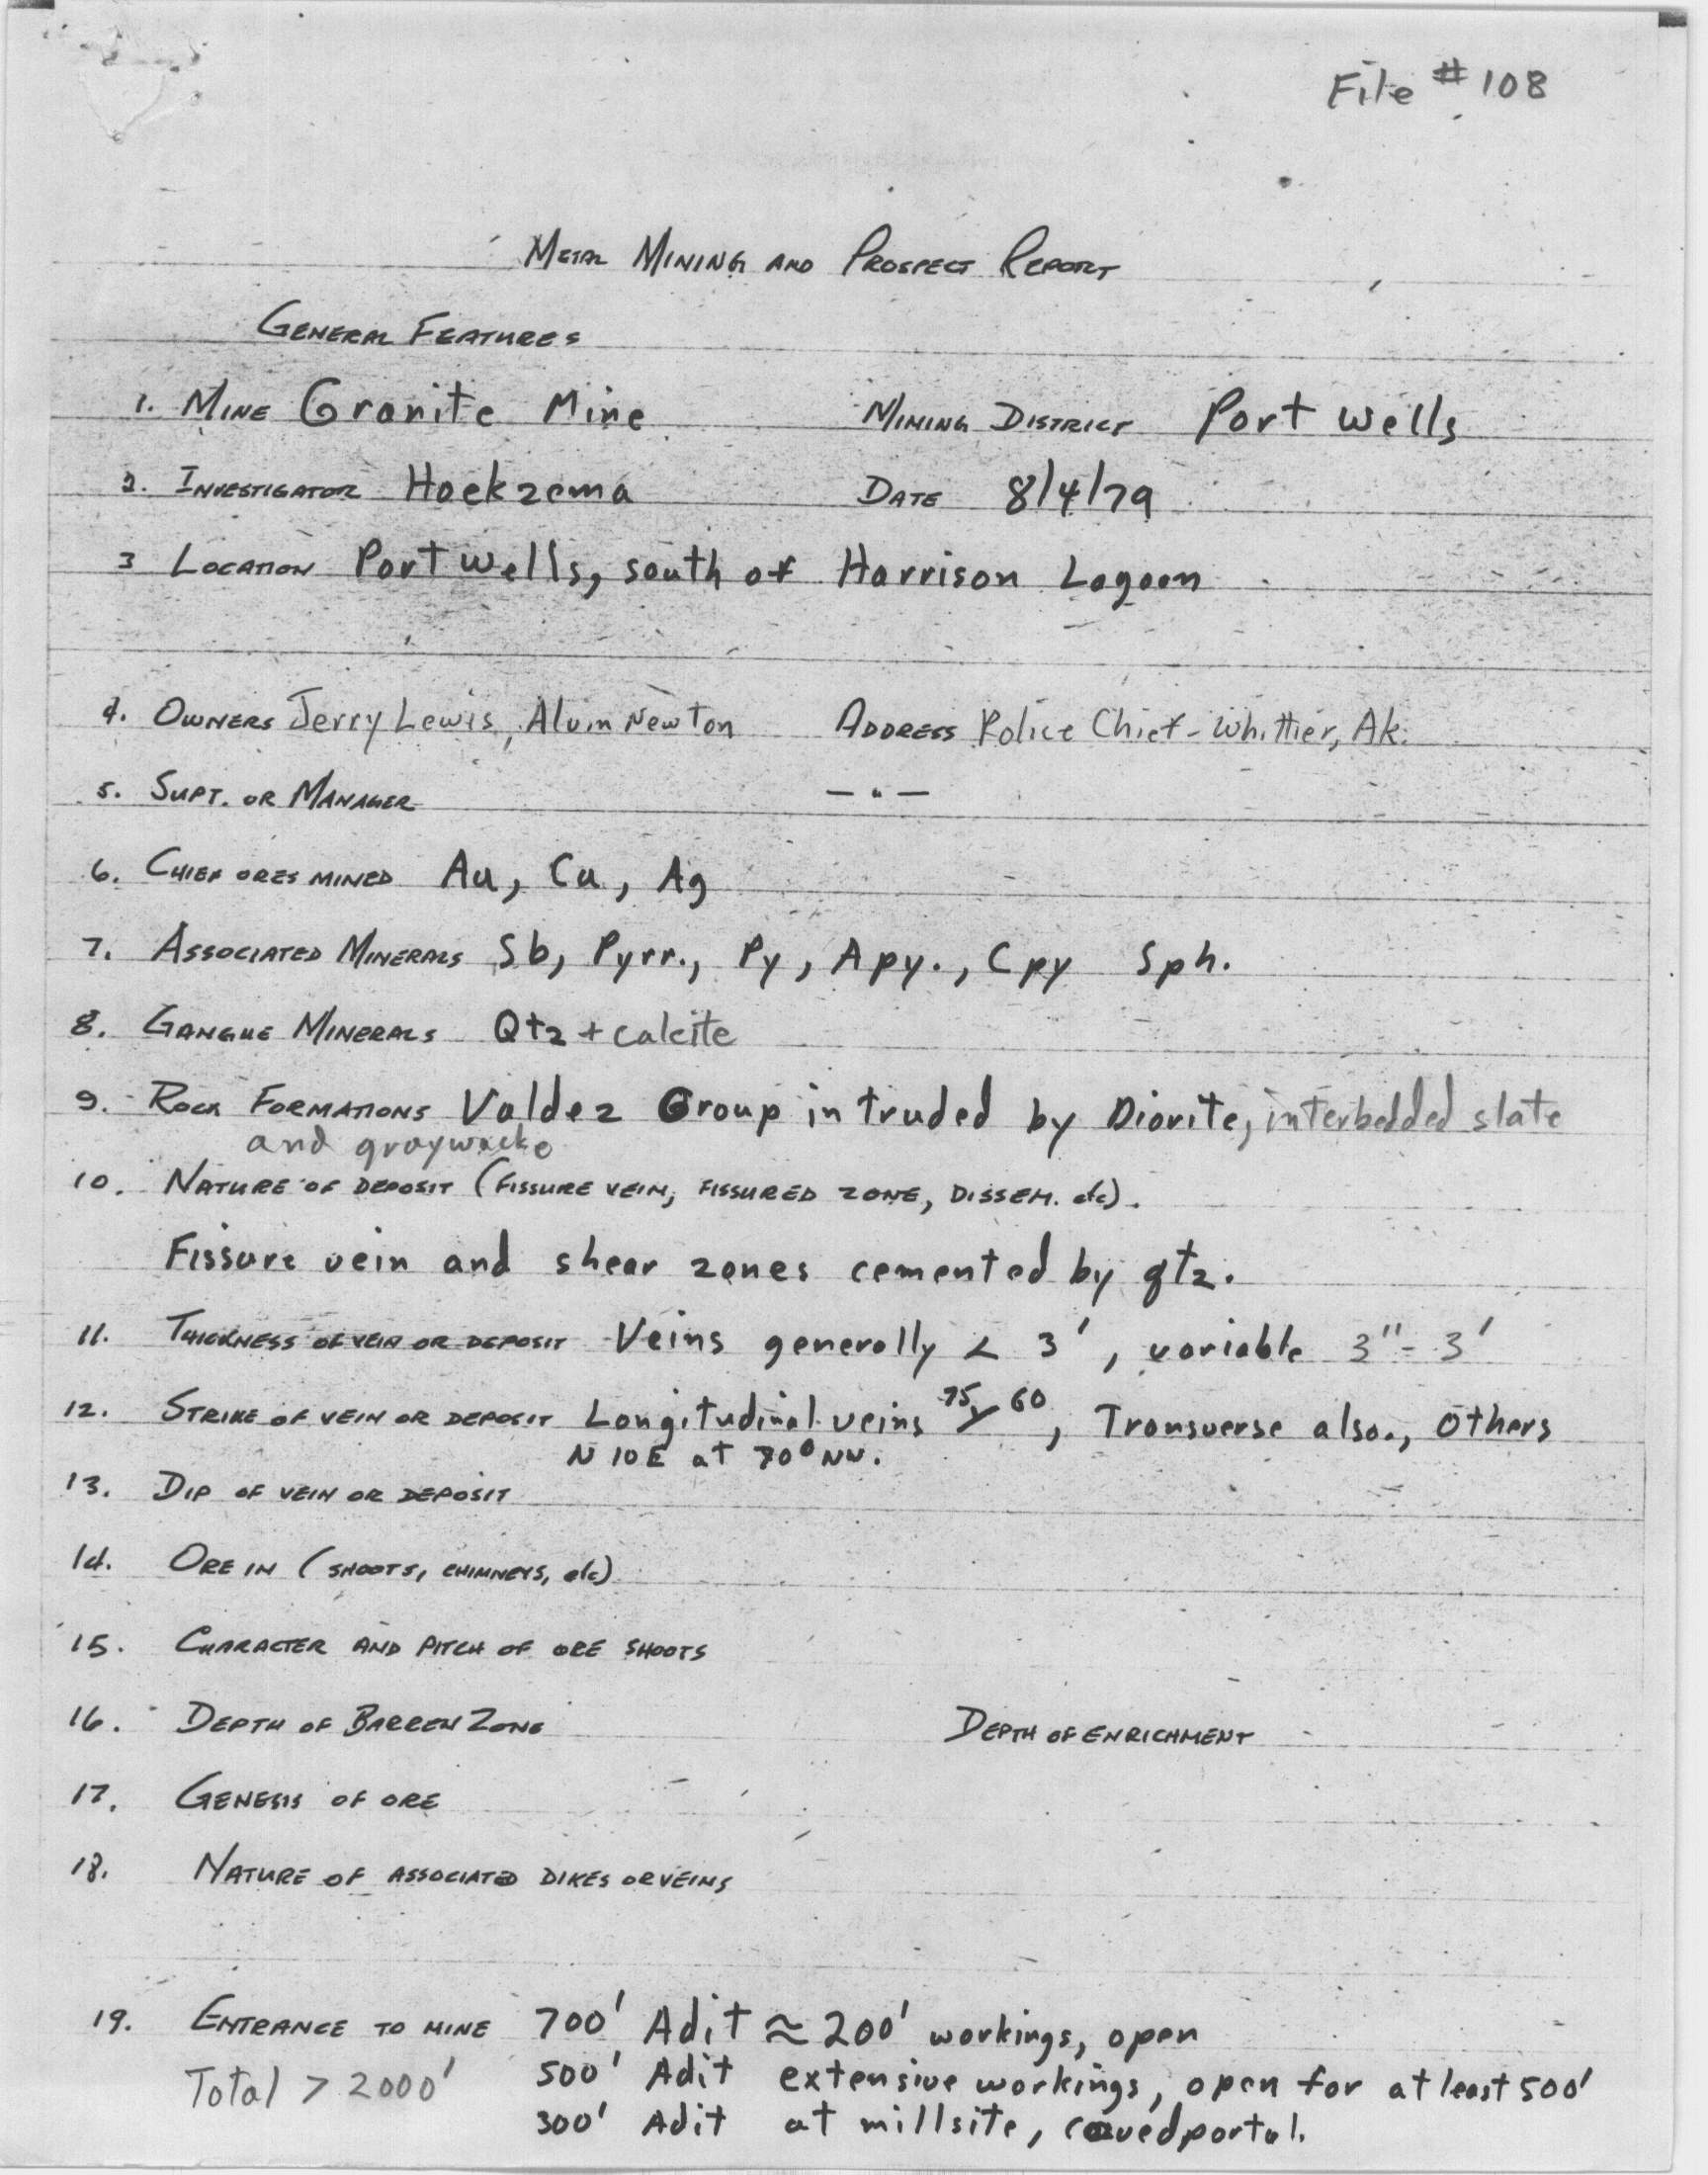 File # 108
METAL MINING AND PROSPECT REPORT
GENERAL FEATURES
1. MINE Granite Mine MINING DISTRICT Port Wells
2. INVESTIGATOR Hoekzema DATE 8/4/79
3 LOCATION Port Wells, south of Harrison Lagoon
4. OWNERS Jerry Lewis, Alvin Newton ADDRESS Police Chief - Whittier, Ak.
5. SUPT. OR MANAGER — " —
6. CHIEF ORES MINED Au, Cu, Ag
7. ASSOCIATED MINERALS Sb, Pyrr., Py, Apy., Cpy Sph.
8. GANGUE MINERALS Qtz + calcite
9. ROCK FORMATIONS Valdez Group intruded by Diorite, interbedded slate
and graywacke
10. NATURE OF DEPOSIT (FISSURE VEIN, FISSURED ZONE, DISSEM. etc).
Fissure vein and shear zones cemented by qtz.
11. THICKNESS OF VEIN OR DEPOSIT Veins generally < 3', variable 3" - 3'
12. STRIKE OF VEIN OR DEPOSIT Longitudinal veins 75 60, Transverse also., Others
N 10 E at 70° NW.
13. DIP OF VEIN OR DEPOSIT
14. ORE IN (SHOOTS, CHIMNEYS, etc)
15. CHARACTER AND PITCH OF ORE SHOOTS
16. DEPTH OF BARREN ZONE DEPTH OF ENRICHMENT
17. GENESIS OF ORE
18. NATURE OF ASSOCIATED DIKES OR VEINS
19. ENTRANCE TO MINE 700' Adit ≈ 200' workings, open
Total > 2000' 500' Adit extensive workings, open for at least 500'
300' Adit at millsite, caved portal.